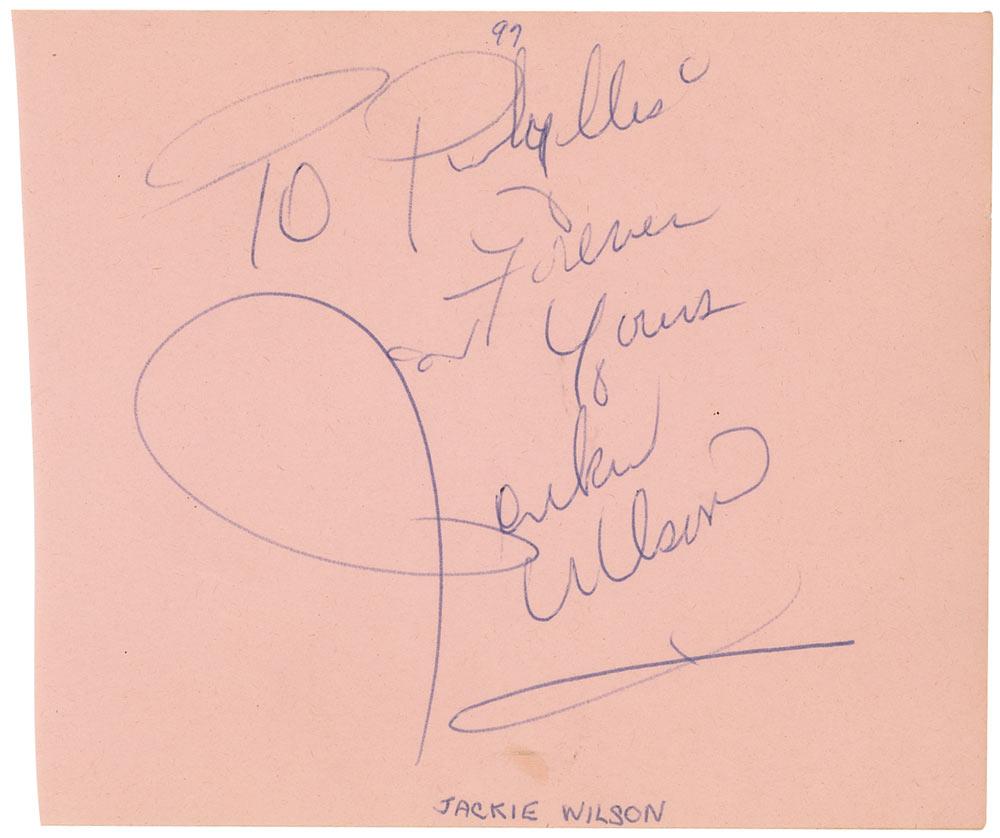 97
To Phyllis
Forever
Yours
Jackie
Wilson
JACKIE WILSON